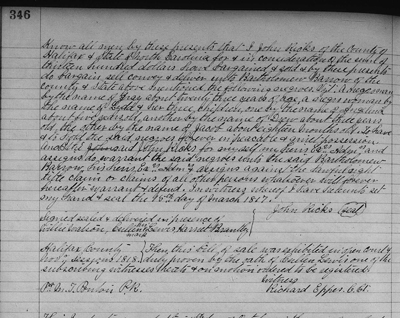 346
Know all men by these presents that I John Hicks of the County of
Halifax & State of North Carolina for & in consideration of the sum of
hundred dollars have bargained & sold & by these presents
do bargain sell convey & deliver unto Bartholomew Barrow of the
county & State above mentioned the following negroes Vizt. a negro man
by the name of about twenty three years of age, a negro woman by
the name of & her three children, one by the name of
about five years old, another by the name of about three years
old, the other by the name of about eighteen months old. To have
& to hold the said negroes forever in peaceable & quiet possession
and I the said John Hicks for my self my heirs Exrs. Admrs. and
assigns do warrant the said negroes unto the said Bartholomew
Barrow, his heirs Exrs. Admrs. & assigns against the lawful right
title claim or claims of all other persons whatsoever but forever
hereafter warrant & defend. In witness whereof I have hereunto set
my hand & seal the day of march 1817.
John Hicks Seal
Signed sealed & delivered in presence of
Harriet
mark
Halifax County Then this Bill of Sale was exhibited in open Court
Novr. sessions 1818. duly proven by the oath of one of the
subscribing witnesses thereto & on motion ordered to be registered.
Witness
Richard Eppes C. Ct.
P. R.